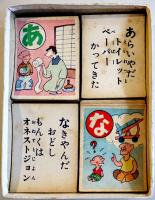 あ
あらいやだ
トイレット
ペーパー
かってきた
なきやんだ
おどし
もんくは
オネストジョン
な